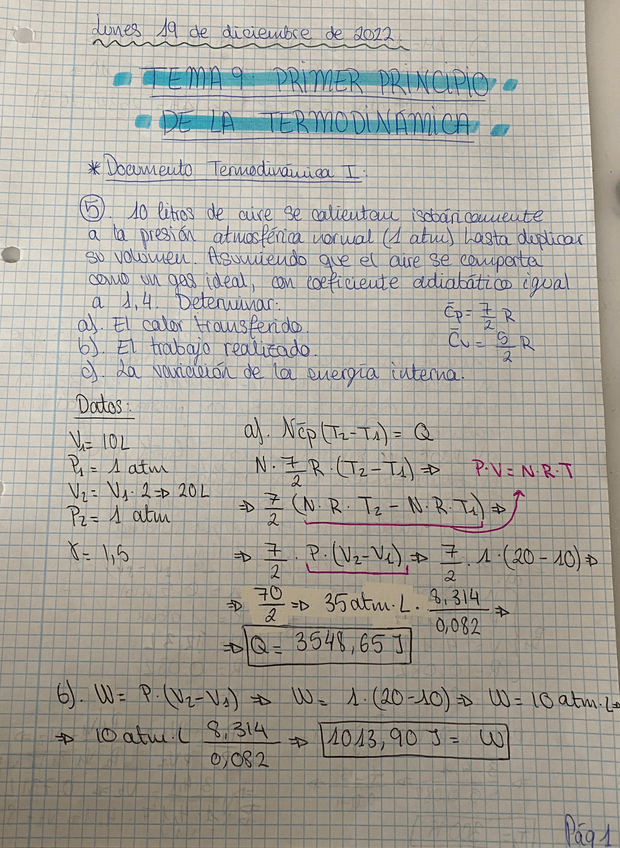 Lunes 19 de diciembre de 2022.
TEMA 9 PRIMER PRINCIPIO
DE LA TERMODINÁMICA
* Documento Termodinámica I:
⑤. 10 litros de aire se calientan isobáricamente
a la presión atmosférica normal (1 atm) hasta duplicar
su volumen. Asumiendo que el aire se comporta
como un gas ideal, con coeficiente adiabático igual
a 1,4. Determinar:
a). El calor transferido.
b). El trabajo realizado.
c). La variación de la energía interna.
C̄p = 7/2 R
C̄v = 5/2 R
Datos:
V₁ = 10L
P₁ = 1 atm
V₂ = V₁ · 2 ⇒ 20L
P₂ = 1 atm
γ = 1,5
a). N c̄p (T₂ - T₁) = Q
N · 7/2 R · (T₂ - T₁) ⇒ P·V = N·R·T
⇒ 7/2 (N · R · T₂ - N · R · T₁) ⇒
⇒ 7/2 · P · (V₂ - V₁) ⇒ 7/2 · 1 · (20 - 10) ⇒
⇒ 70/2 ⇒ 35 atm·L · 8,314/0,082 ⇒
⇒ Q = 3548,65 J
b). W = P · (V₂ - V₁) ⇒ W = 1 · (20 - 10) ⇒ W = 10 atm·L ⇒
⇒ 10 atm·L 8,314/0,082 ⇒ 1013,90 J = W
Pág 1